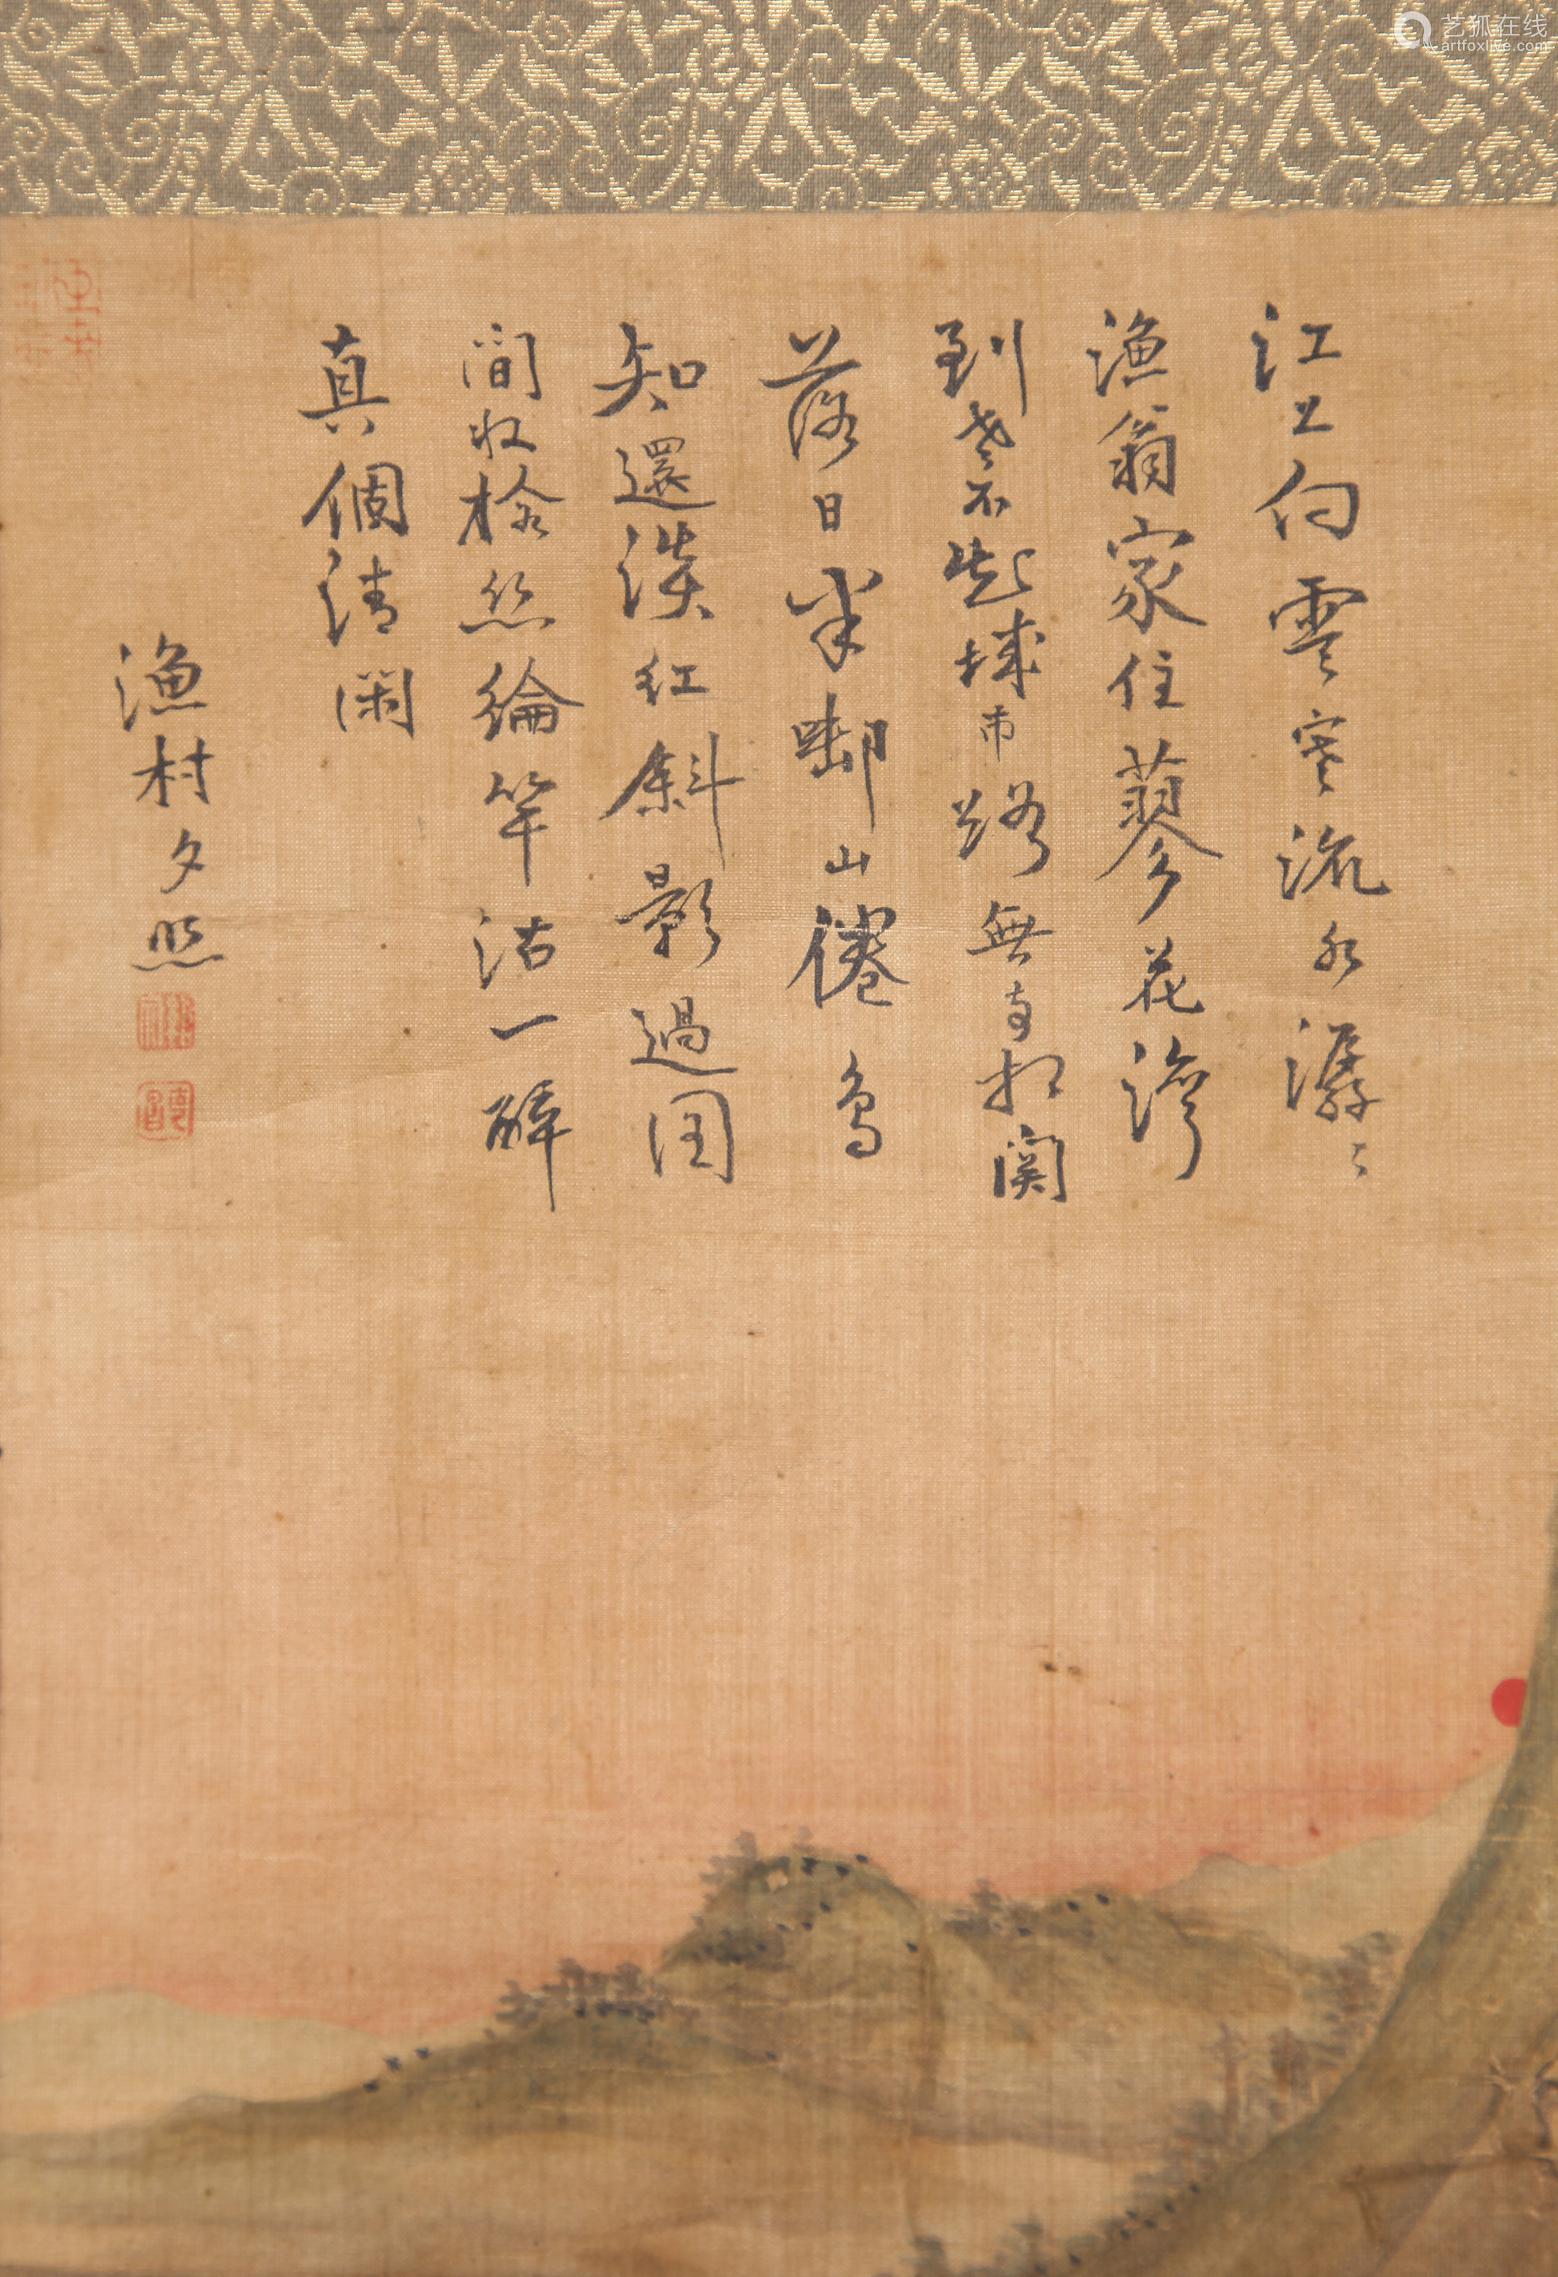 江上向雲寒流水潺〻
漁翁家住蓼花灣
到老不趍城市路無事相関
落日半啣山倦鳥
知還淡紅斜影過
間收拾絲綸竿沽一醉
真個清閑
漁村夕照
艺狐在线
artfoxlive.com